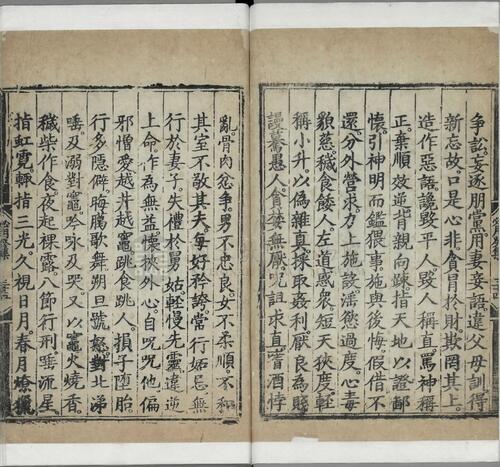 爭訟。妄逐朋黨。用妻妾語。違父母訓。得
新忘故。口是心非。貪冒於財。欺罔其上。
造作惡語。讒毀平人。毀人稱直。罵神稱
正。棄順效逆。背親向疎。指天地以證鄙
懷。引神明而鑑猥事。施與後悔。假借不
還。分外營求。力上施設。淫慾過度。心毒
貌慈。穢食餧人。左道惑衆。短尺狹度。輕
稱小升。以偽雜真。採取姦利。厭良為賤。
謾驀愚人。貪婪無厭。呪詛求直。嗜酒悖
亂。骨肉忿爭。男不忠良。女不柔順。不和
其室。不敬其夫。每好矜誇。常行妬忌。無
行於妻子。失禮於舅姑。輕慢先靈。違逆
上命。作為無益。懷挾外心。自呪呪他。偏
邪憎愛。越井越竈。跳食跳人。損子墮胎。
行多隱僻。晦臘歌舞。朔旦號怒。對北涕
唾及溺。對竈吟咏及哭。又以竈火燒香。
穢柴作食。夜起裸露。八節行刑。唾流星。
指虹霓。輙指三光。久視日月。春月燎獵。